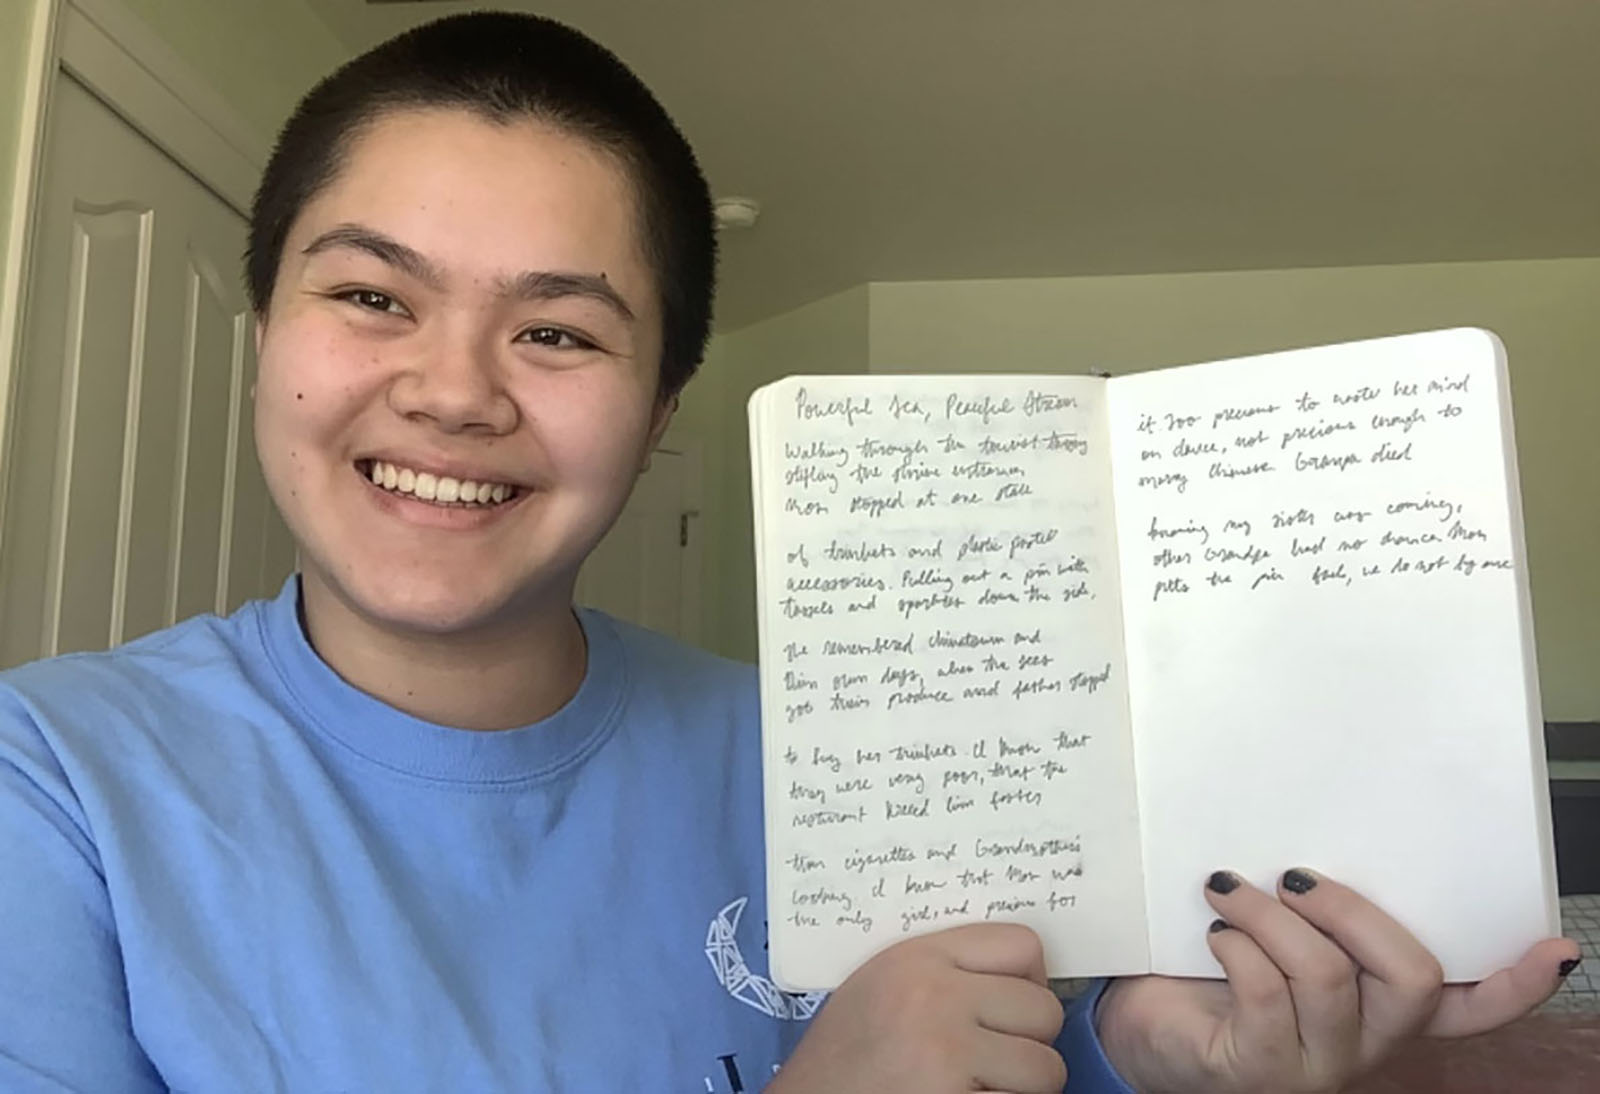 Powerful Sea, Peaceful Stream
Walking through the tourist throng
stifling the shrine entrance
Mom stopped at one stall
of trinkets and plastic pastel
accessories. Pulling out a pin with
tassels and sparkles down the side,
She remembered Chinatown and
their own days, when the
got their produce and father stopped
to buy her trinkets. I know that
they were very poor, that the
restaurant killed him faster
than cigarettes and Grandmother's
cooking. I know that Mom was
the only girl, and precious for
it. Too precious to waste her mind
on dance, not precious enough to
marry Chinese. Grandpa died
knowing my sister was coming,
other Grandpa had no chance. Mom
puts the pin back, we do not buy one